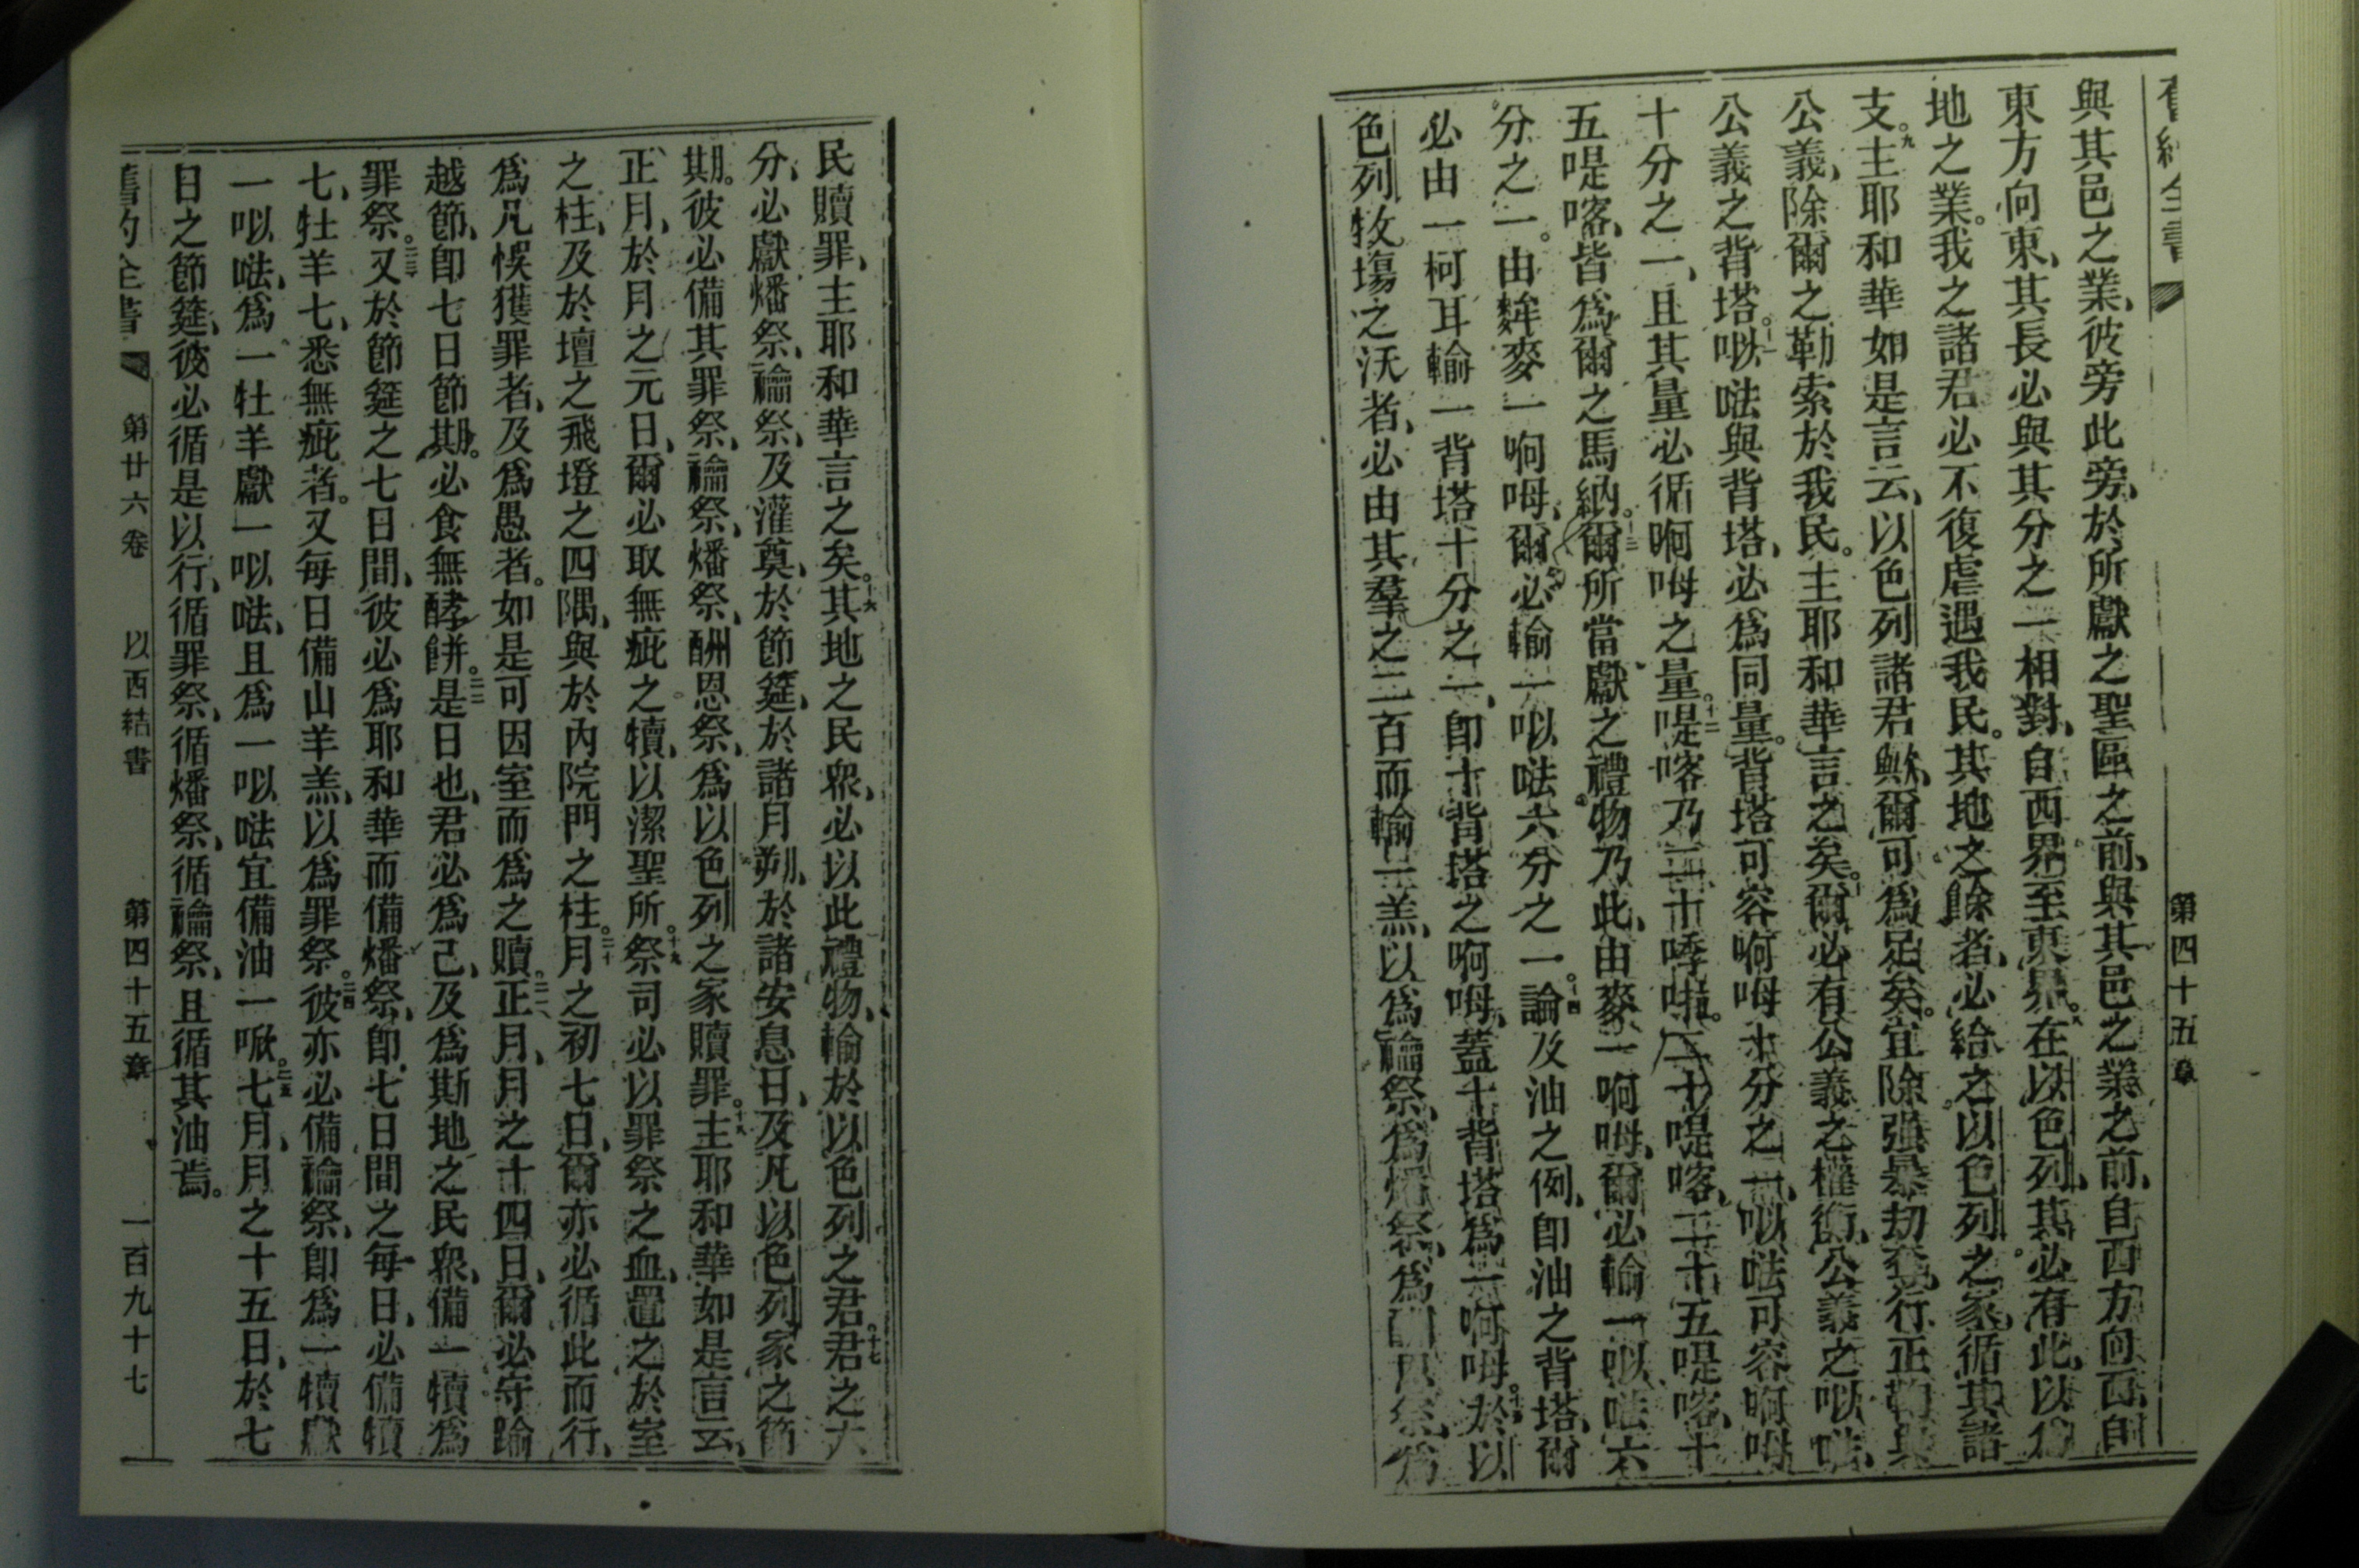 第四十五章
與其邑之業、彼旁此旁、於所獻之聖區之前、與其邑之業之前、自西方向西、自
東方向東、其長必與其分之一相對、自西界至東界。在以色列、其必有此、以為
地之業。我之諸君必不復虐遇我民。其地之餘者、必給之以色列之家、循其諸
支。九主耶和華如是言云、以色列諸君歟、爾可為足矣。宜除强暴刧奪、行正鞫與
公義、除爾之勒索於我民。主耶和華言之矣。十爾必有公義之權衡、公義之㕥㗎、
公義之背塔。十一㕥㗎與背塔、必為同量。背塔可容啊呣十分之一、㕥㗎可容啊呣
十分之一、且其量必循啊呣之量。十二㖷喀乃二十㖀啦。二十㖷喀、二十五㖷喀、十
五㖷喀、皆為爾之馬納。十三爾所當獻之禮物乃此、由麥一啊呣、爾必輸一㕥㗎六
分之一。由麰麥一啊呣、爾必輸一㕥㗎六分之一。十四論及油之例、即油之背塔、爾
必由一柯耳輸一背塔十分之一、即十背塔之啊呣、蓋十背塔為一啊呣。十五於以
色列牧塲之沃者、必由其羣之二百而輸一羔、以為禴祭、為燔祭、為酬恩祭、為
民贖罪、主耶和華言之矣。十六其地之民衆、必以此禮物、輸於以色列之君。十七君之大
分、必獻燔祭、禴祭、及灌奠、於節筵、於諸月朔、於諸安息日、及凡以色列家之節
期。彼必備其罪祭、禴祭、燔祭、酬恩祭、為以色列之家贖罪。十八主耶和華如是言云、
正月、於月之元日、爾必取無疵之犢、以潔聖所。十九祭司必以罪祭之血、置之於室
之柱、及於壇之飛墱之四隅、與於內院門之柱。二十月之初七日、爾亦必循此而行、
為凡悞獲罪者、及為愚者。如是可因室而為之贖。二一正月、月之十四日、爾必守踰
越節、即七日節期。必食無酵餅。二二是日也、君必為己、及為斯地之民衆、備一犢為
罪祭。二三又於節筵之七日間、彼必為耶和華而備燔祭、即七日間之每日、必備犢
七、牡羊七、悉無疵者。又每日備山羊羔、以為罪祭。二四彼亦必備禴祭、即為一犢獻
一㕥㗎、為一牡羊獻一㕥㗎、且為一㕥㗎宜備油一㗁。二五七月、月之十五日、於七
日之節筵、彼必循是以行、循罪祭、循燔祭、循禴祭、且循其油焉。
第廿六卷 以西結書 第四十五章 一百九十七